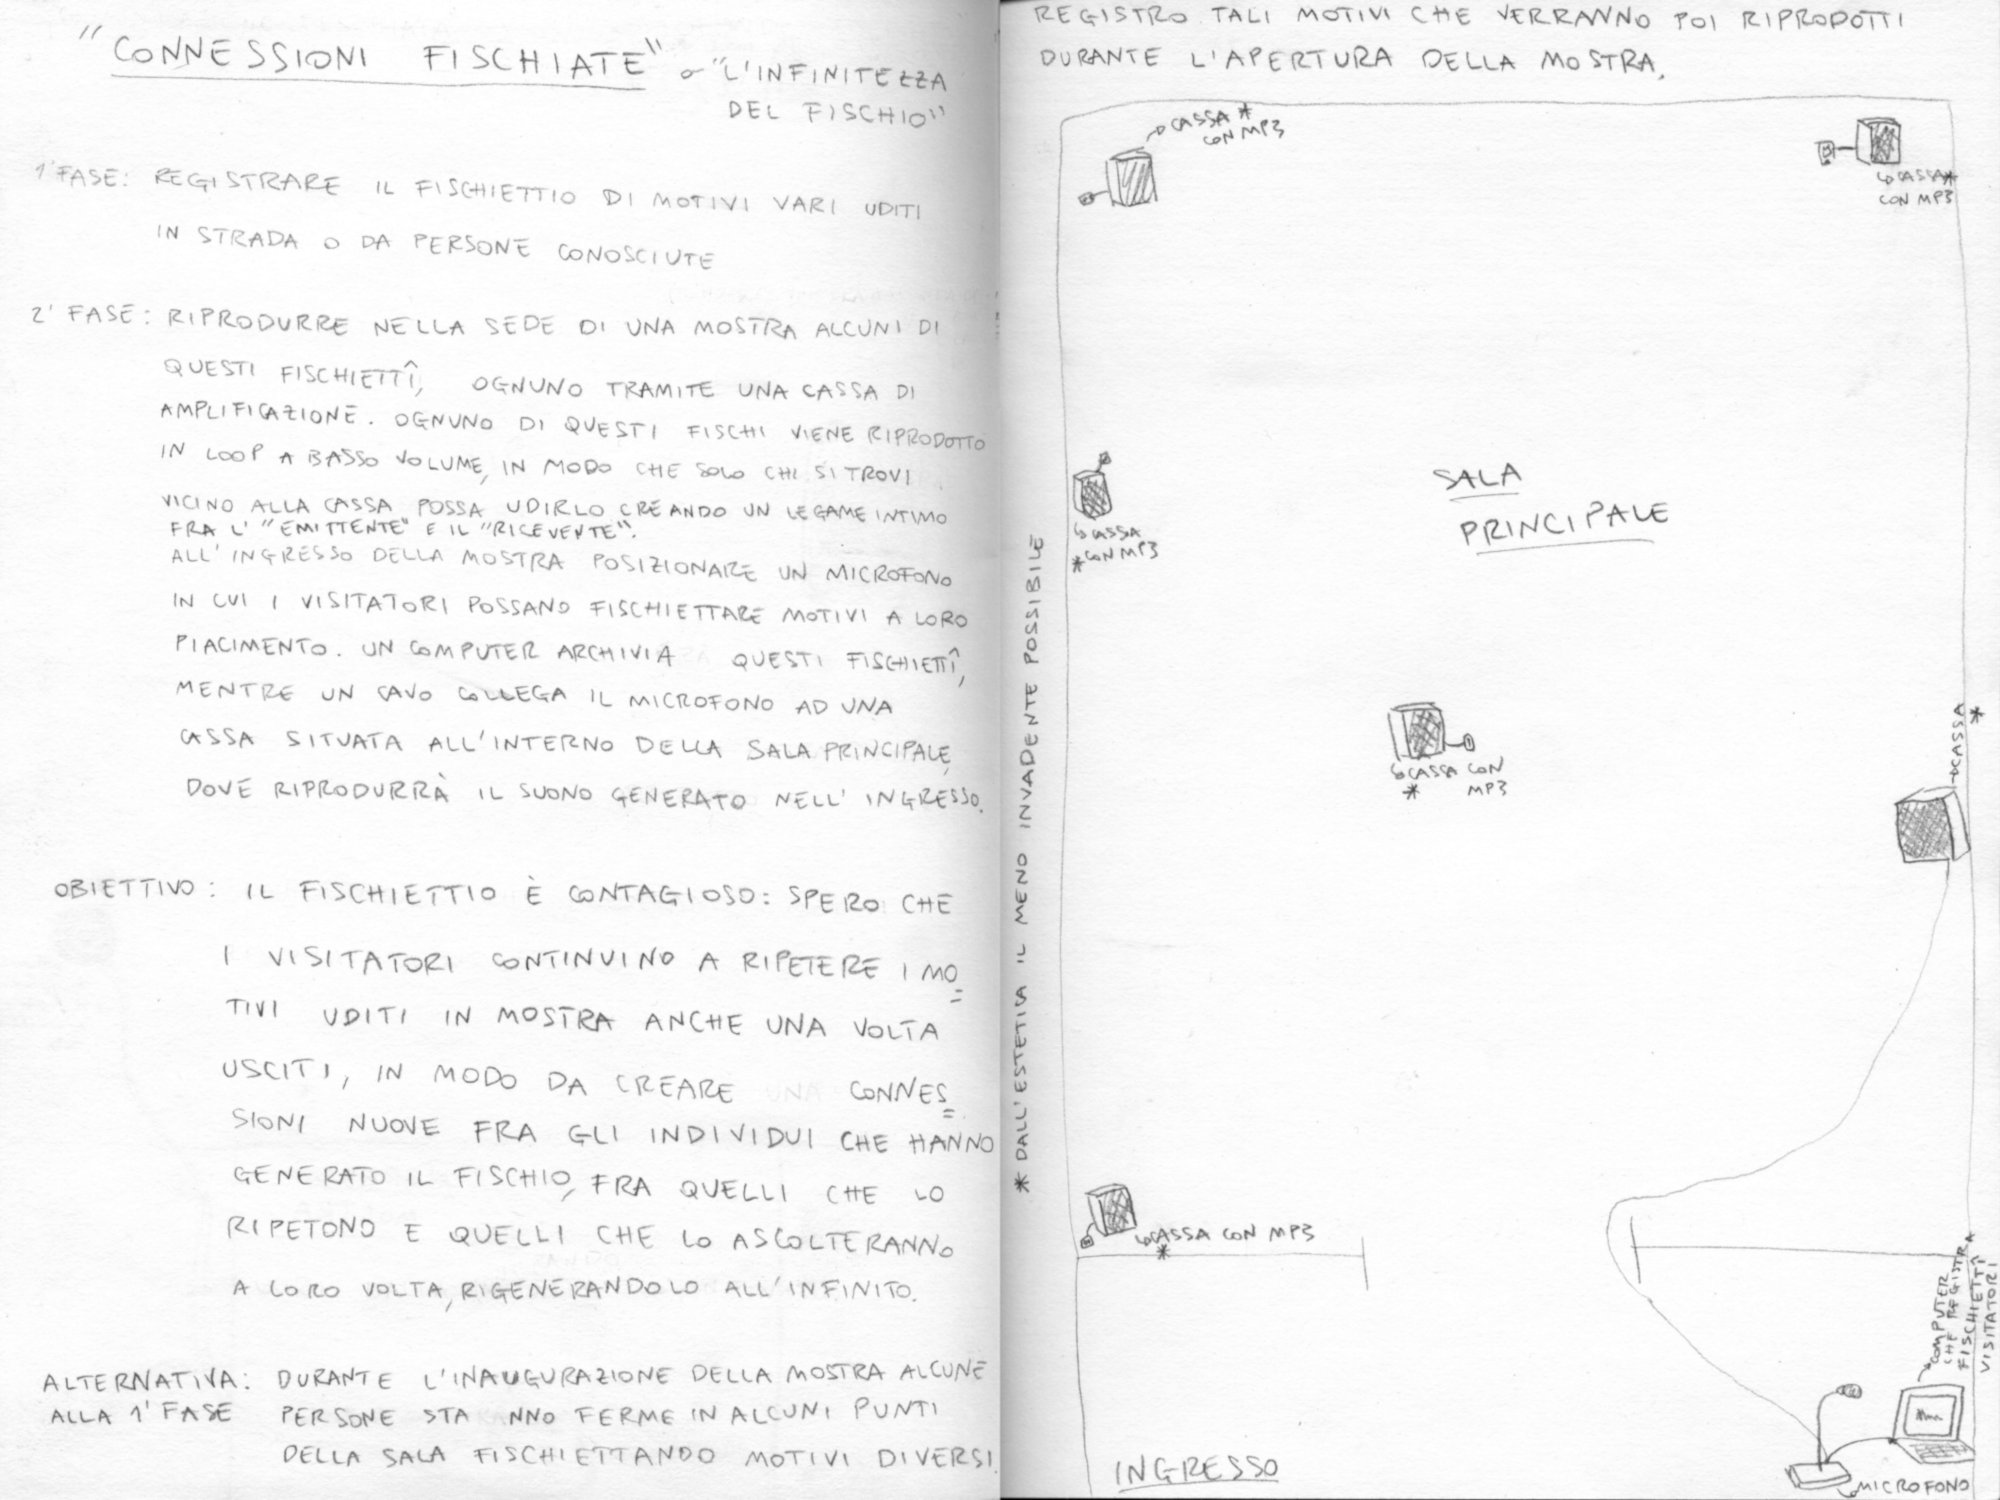 "CONNESSIONI FISCHIATE" o "L'INFINITEZZA
DEL FISCHIO"
1' FASE: REGISTRARE IL FISCHIETTIO DI MOTIVI VARI UDITI
IN STRADA O DA PERSONE CONOSCIUTE
2' FASE: RIPRODURRE NELLA SEDE DI UNA MOSTRA ALCUNI DI
QUESTI FISCHIETTÎ, OGNUNO TRAMITE UNA CASSA DI
AMPLIFICAZIONE. OGNUNO DI QUESTI FISCHI VIENE RIPRODOTTO
IN LOOP A BASSO VOLUME, IN MODO CHE SOLO CHI SI TROVI
VICINO ALLA CASSA POSSA UDIRLO CREANDO UN LEGAME INTIMO
FRA L' "EMITTENTE" E IL "RICEVENTE".
ALL'INGRESSO DELLA MOSTRA POSIZIONARE UN MICROFONO
IN CUI I VISITATORI POSSANO FISCHIETTARE MOTIVI A LORO
PIACIMENTO. UN COMPUTER ARCHIVIA QUESTI FISCHIETTÎ,
MENTRE UN CAVO COLLEGA IL MICROFONO AD UNA
CASSA SITUATA ALL'INTERNO DELLA SALA PRINCIPALE,
DOVE RIPRODURRÀ IL SUONO GENERATO NELL'INGRESSO.
OBIETTIVO: IL FISCHIETTIO È CONTAGIOSO: SPERO CHE
I VISITATORI CONTINUINO A RIPETERE I MO=
TIVI UDITI IN MOSTRA ANCHE UNA VOLTA
USCITI, IN MODO DA CREARE CONNES=
SIONI NUOVE FRA GLI INDIVIDUI CHE HANNO
GENERATO IL FISCHIO, FRA QUELLI CHE LO
RIPETONO E QUELLI CHE LO ASCOLTERANNO
A LORO VOLTA, RIGENERANDOLO ALL'INFINITO.
ALTERNATIVA: DURANTE L'INAUGURAZIONE DELLA MOSTRA ALCUNE
ALLA 1' FASE PERSONE STANNO FERME IN ALCUNI PUNTI
DELLA SALA FISCHIETTANDO MOTIVI DIVERSI.
REGISTRO TALI MOTIVI CHE VERRANNO POI RIPRODOTTI
DURANTE L'APERTURA DELLA MOSTRA.
CASSA *
CON MP3
CASSA *
CON MP3
SALA
PRINCIPALE
CASSA
* CON MP3
* DALL'ESTETICA IL MENO INVADENTE POSSIBILE
CASSA *
CASSA CON
* MP3
CASSA CON MP3
*
COMPUTER
CHE REGISTRA
FISCHIETTÎ
VISITATORI
INGRESSO
MICROFONO